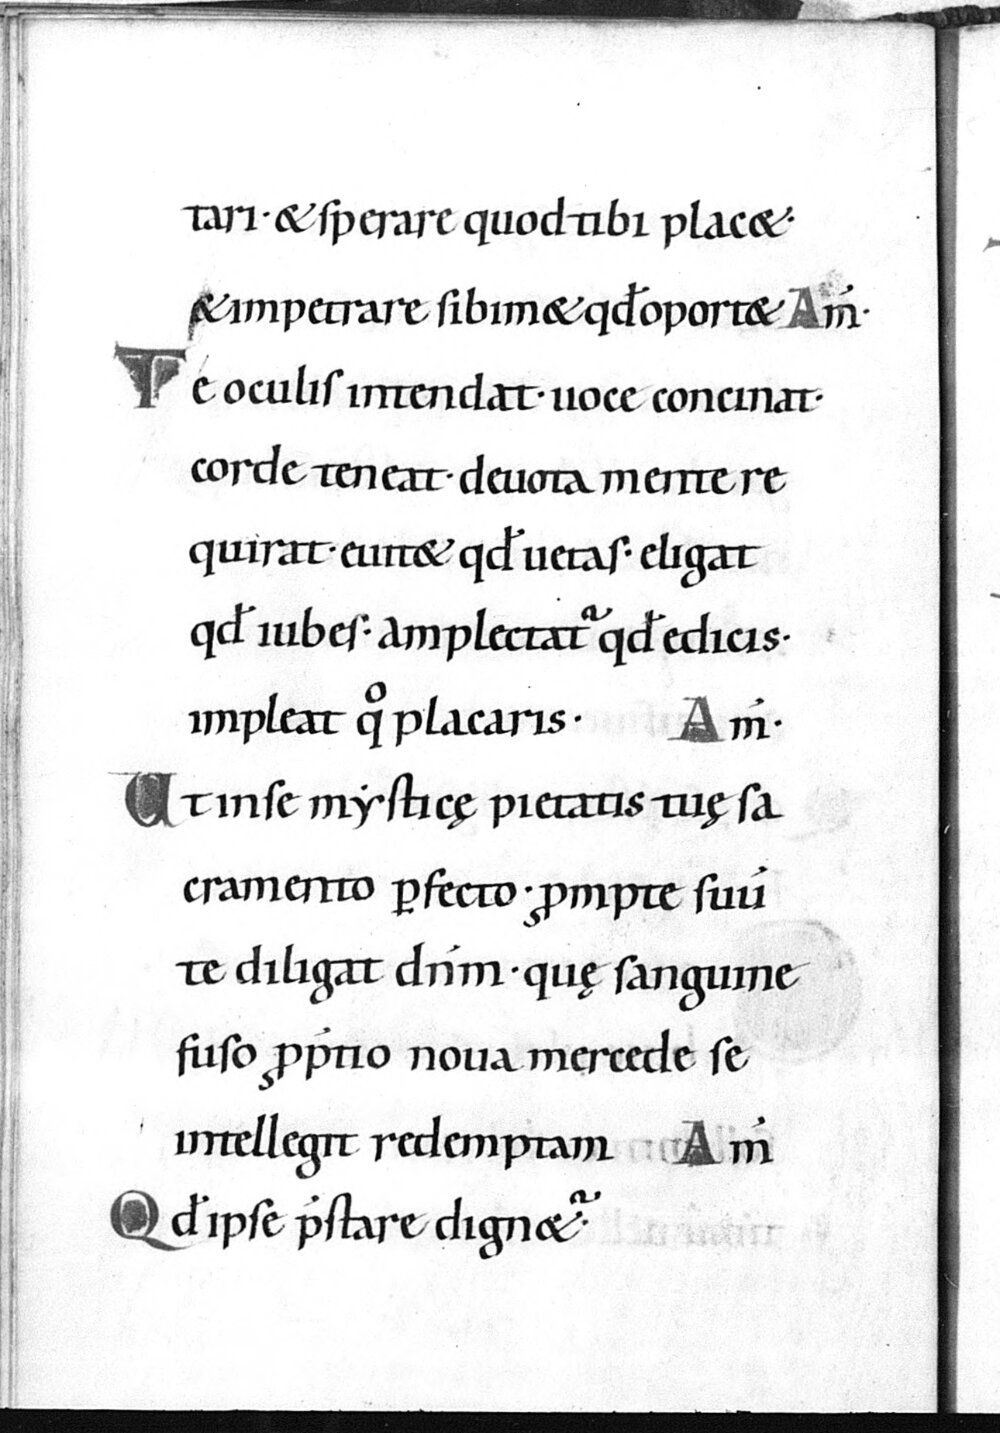 tari· & sperare quod tibi plac&·
& impetrare sibim& qđ oport& Am̄·
Te oculis intendat· uoce concinat·
corde teneat· deuota mente re
quirat· euit& qđ uetas· eligat
qđ iubes· amplectat᷑ qđ edicis·
impleat qͦ placaris· Am̄·
Ut in se mẏsticę pietatis tuę sa
cramento ꝑfecto· ꝓmpte suū
te diligat dn̄m· quę sanguine
fuso ꝓp̄tio noua mercede se
intellegit redemptam Am̄
Qđ ipse p̄stare dign&᷑·